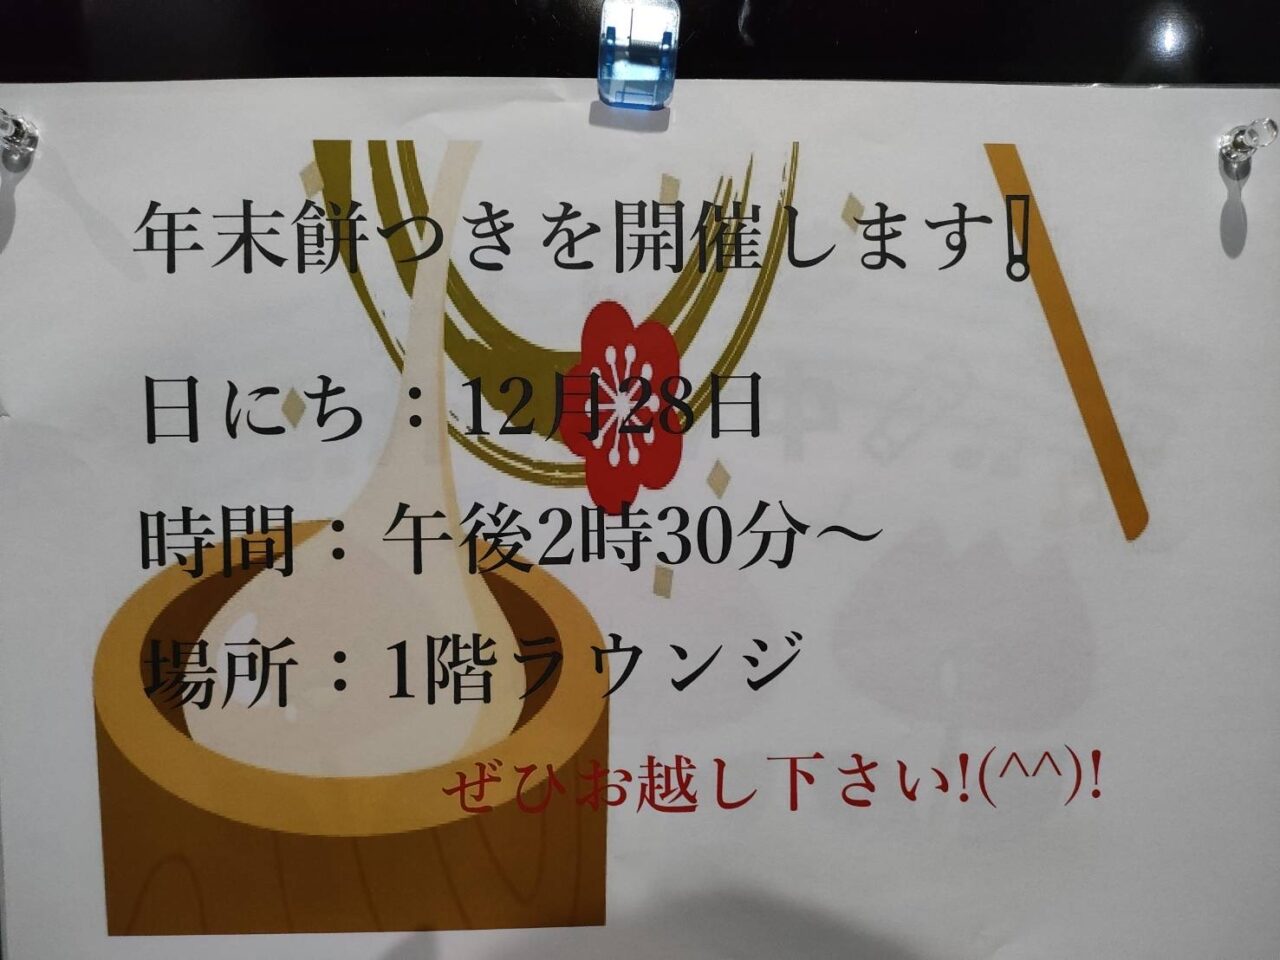 年末餅つきを開催します!
日にち：12月28日
時間：午後2時30分～
場所：1階ラウンジ
ぜひお越し下さい!(^^)!